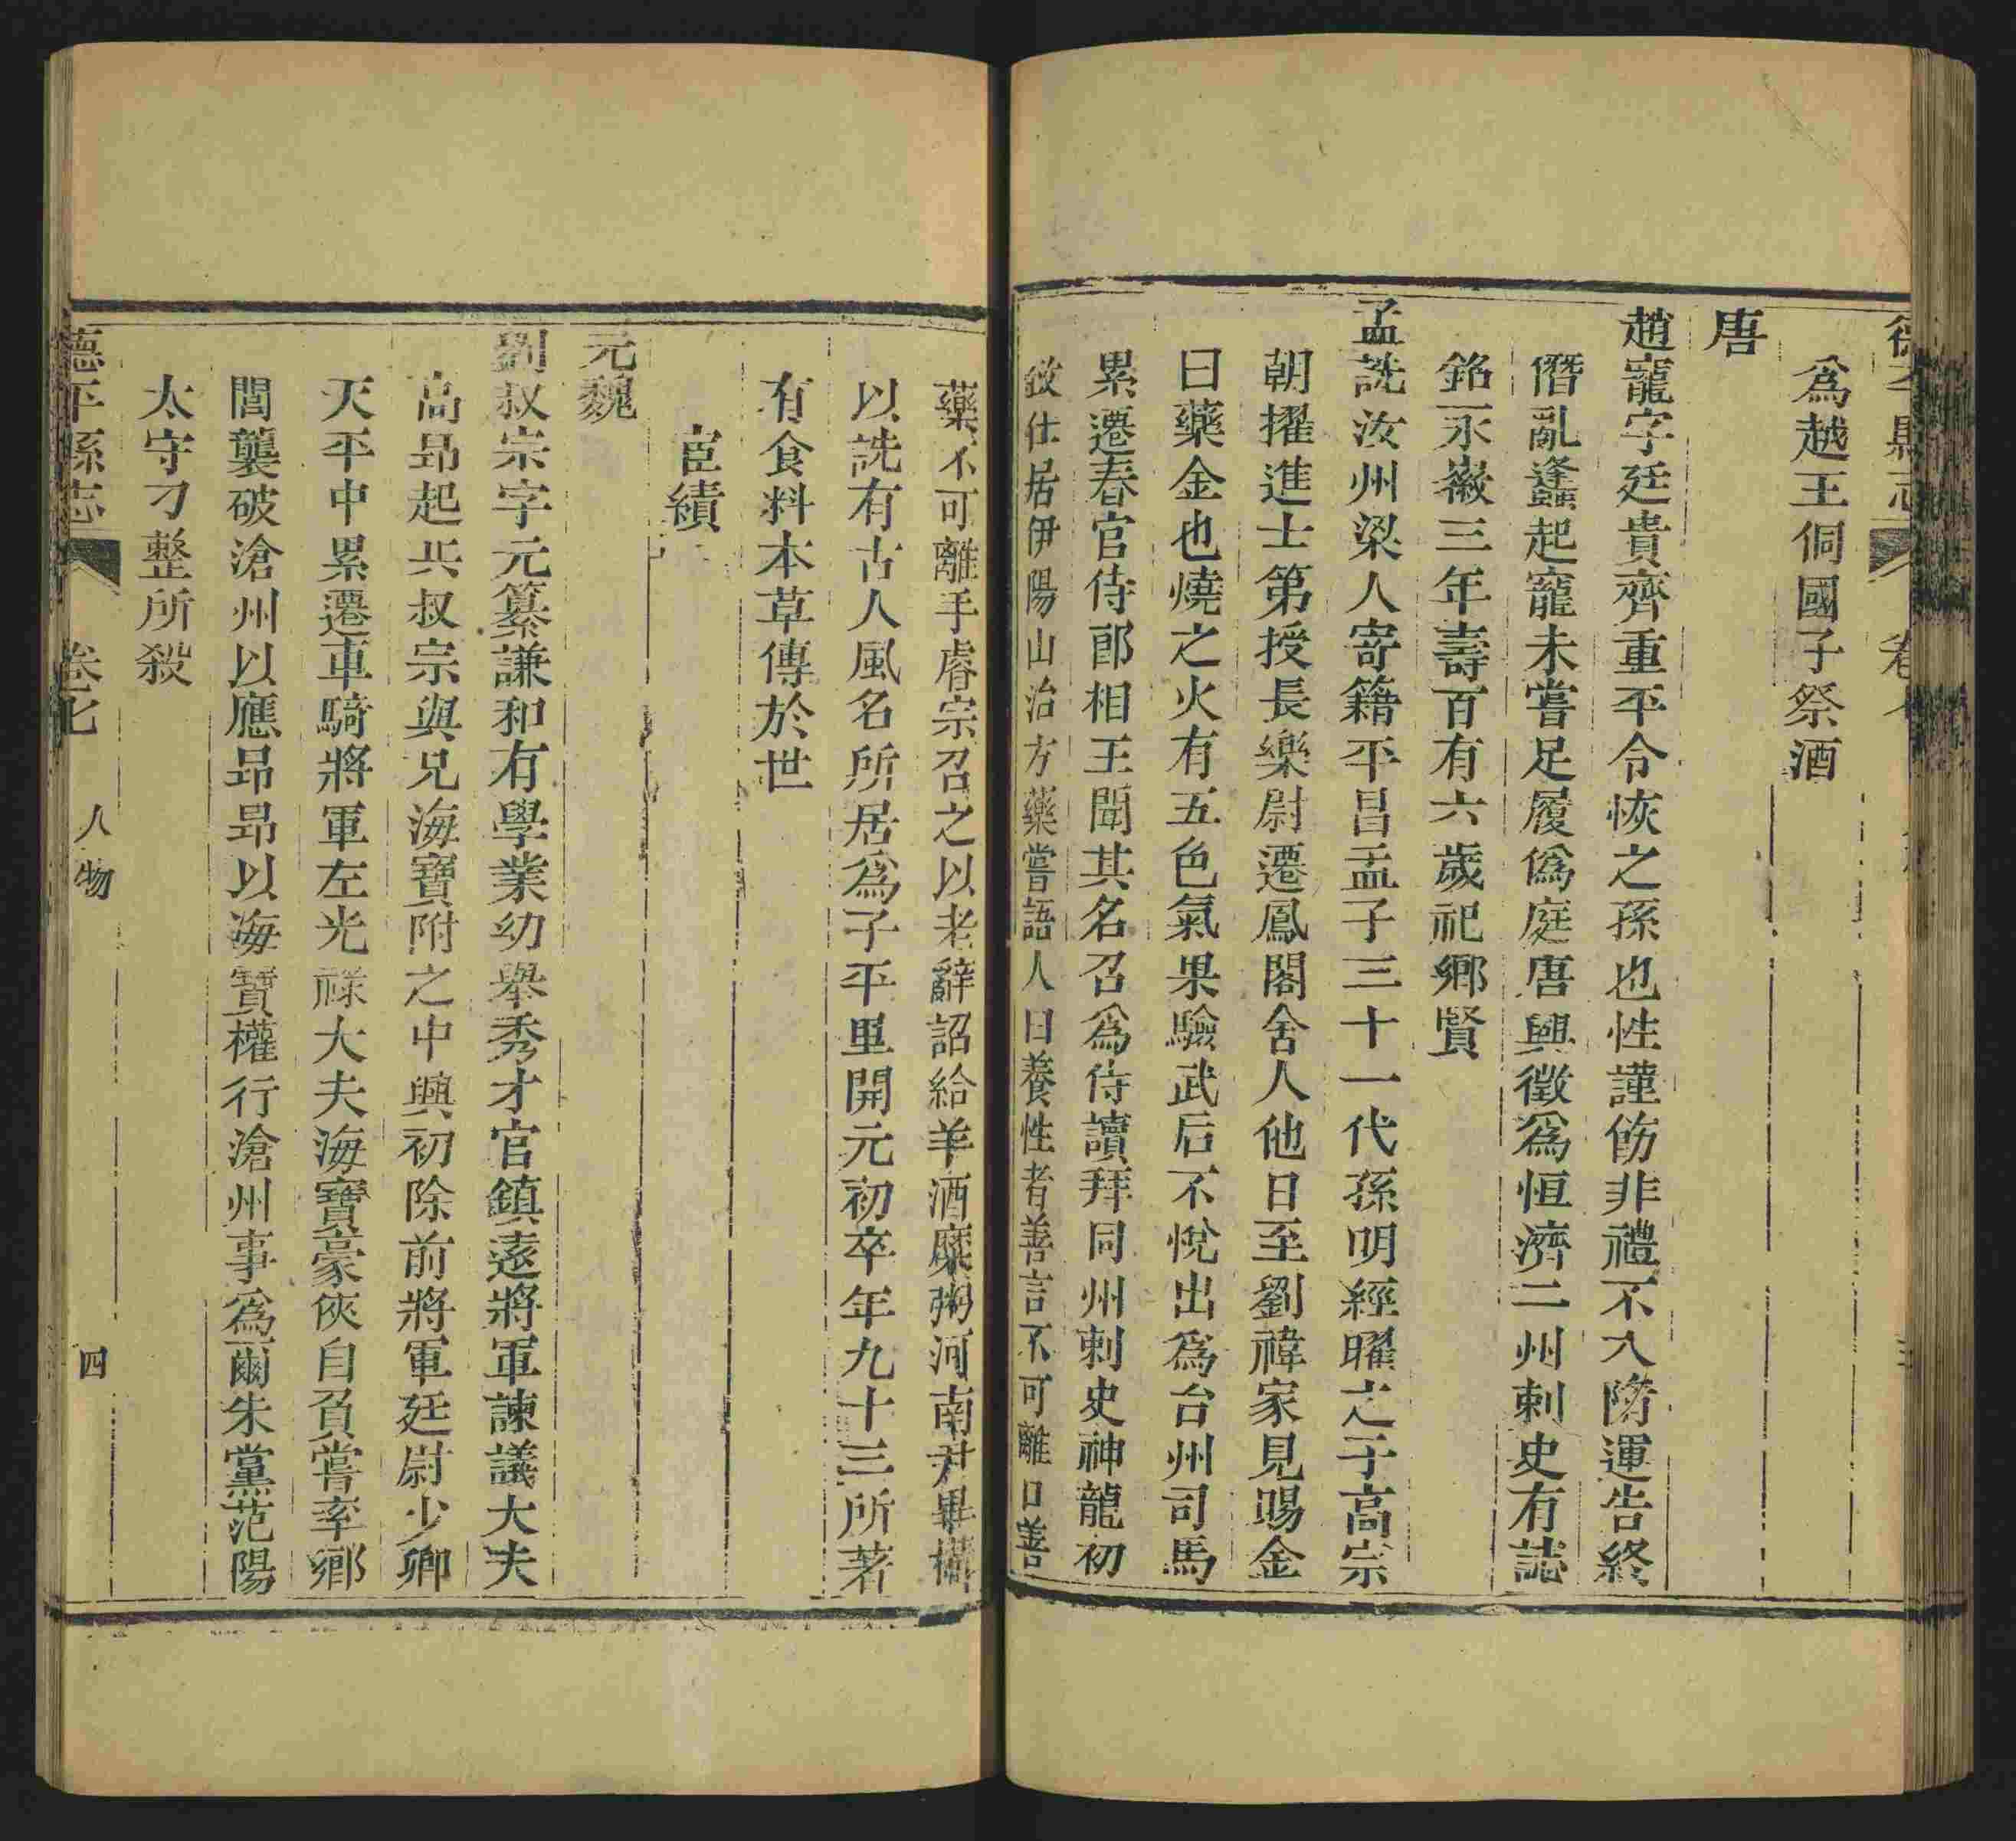 爲越王侗國子祭酒
唐
趙寵字廷貴齊重平令恢之孫也性謹飭非禮不入隋運告終
僭亂蠭起寵未嘗足履僞庭唐興徵爲恒濟二州刺史有誌
銘永徽三年壽百有六歲祀鄉賢
孟詵汝州梁人寄籍平昌孟子三十一代孫明經曜之子高宗
朝擢進士第授長樂尉遷鳳閣舍人他日至劉禕家見賜金
曰藥金也燒之火有五色氣果驗武后不悅出爲台州司馬
累遷春官侍郎相王聞其名召爲侍讀拜同州刺史神龍初
致仕居伊陽山治方藥嘗語人曰養性者善言不可離口善
藥不可離手睿宗召之以老辭詔給羊酒糜粥河南尹畢構
以詵有古人風名所居爲子平里開元初卒年九十三所著
有食料本草傳於世
宦績
元魏
劉叔宗字元纂謙和有學業幼舉秀才官鎮遠將軍諫議大夫
高昻起兵叔宗與兄海寶附之中興初除前將軍廷尉少卿
天平中累遷車騎將軍左光祿大夫海寶豪俠自負嘗率鄉
閭襲破滄州以應昻昻以海寶權行滄州事爲爾朱黨范陽
太守刁整所殺
德平縣志 卷七 人物 四